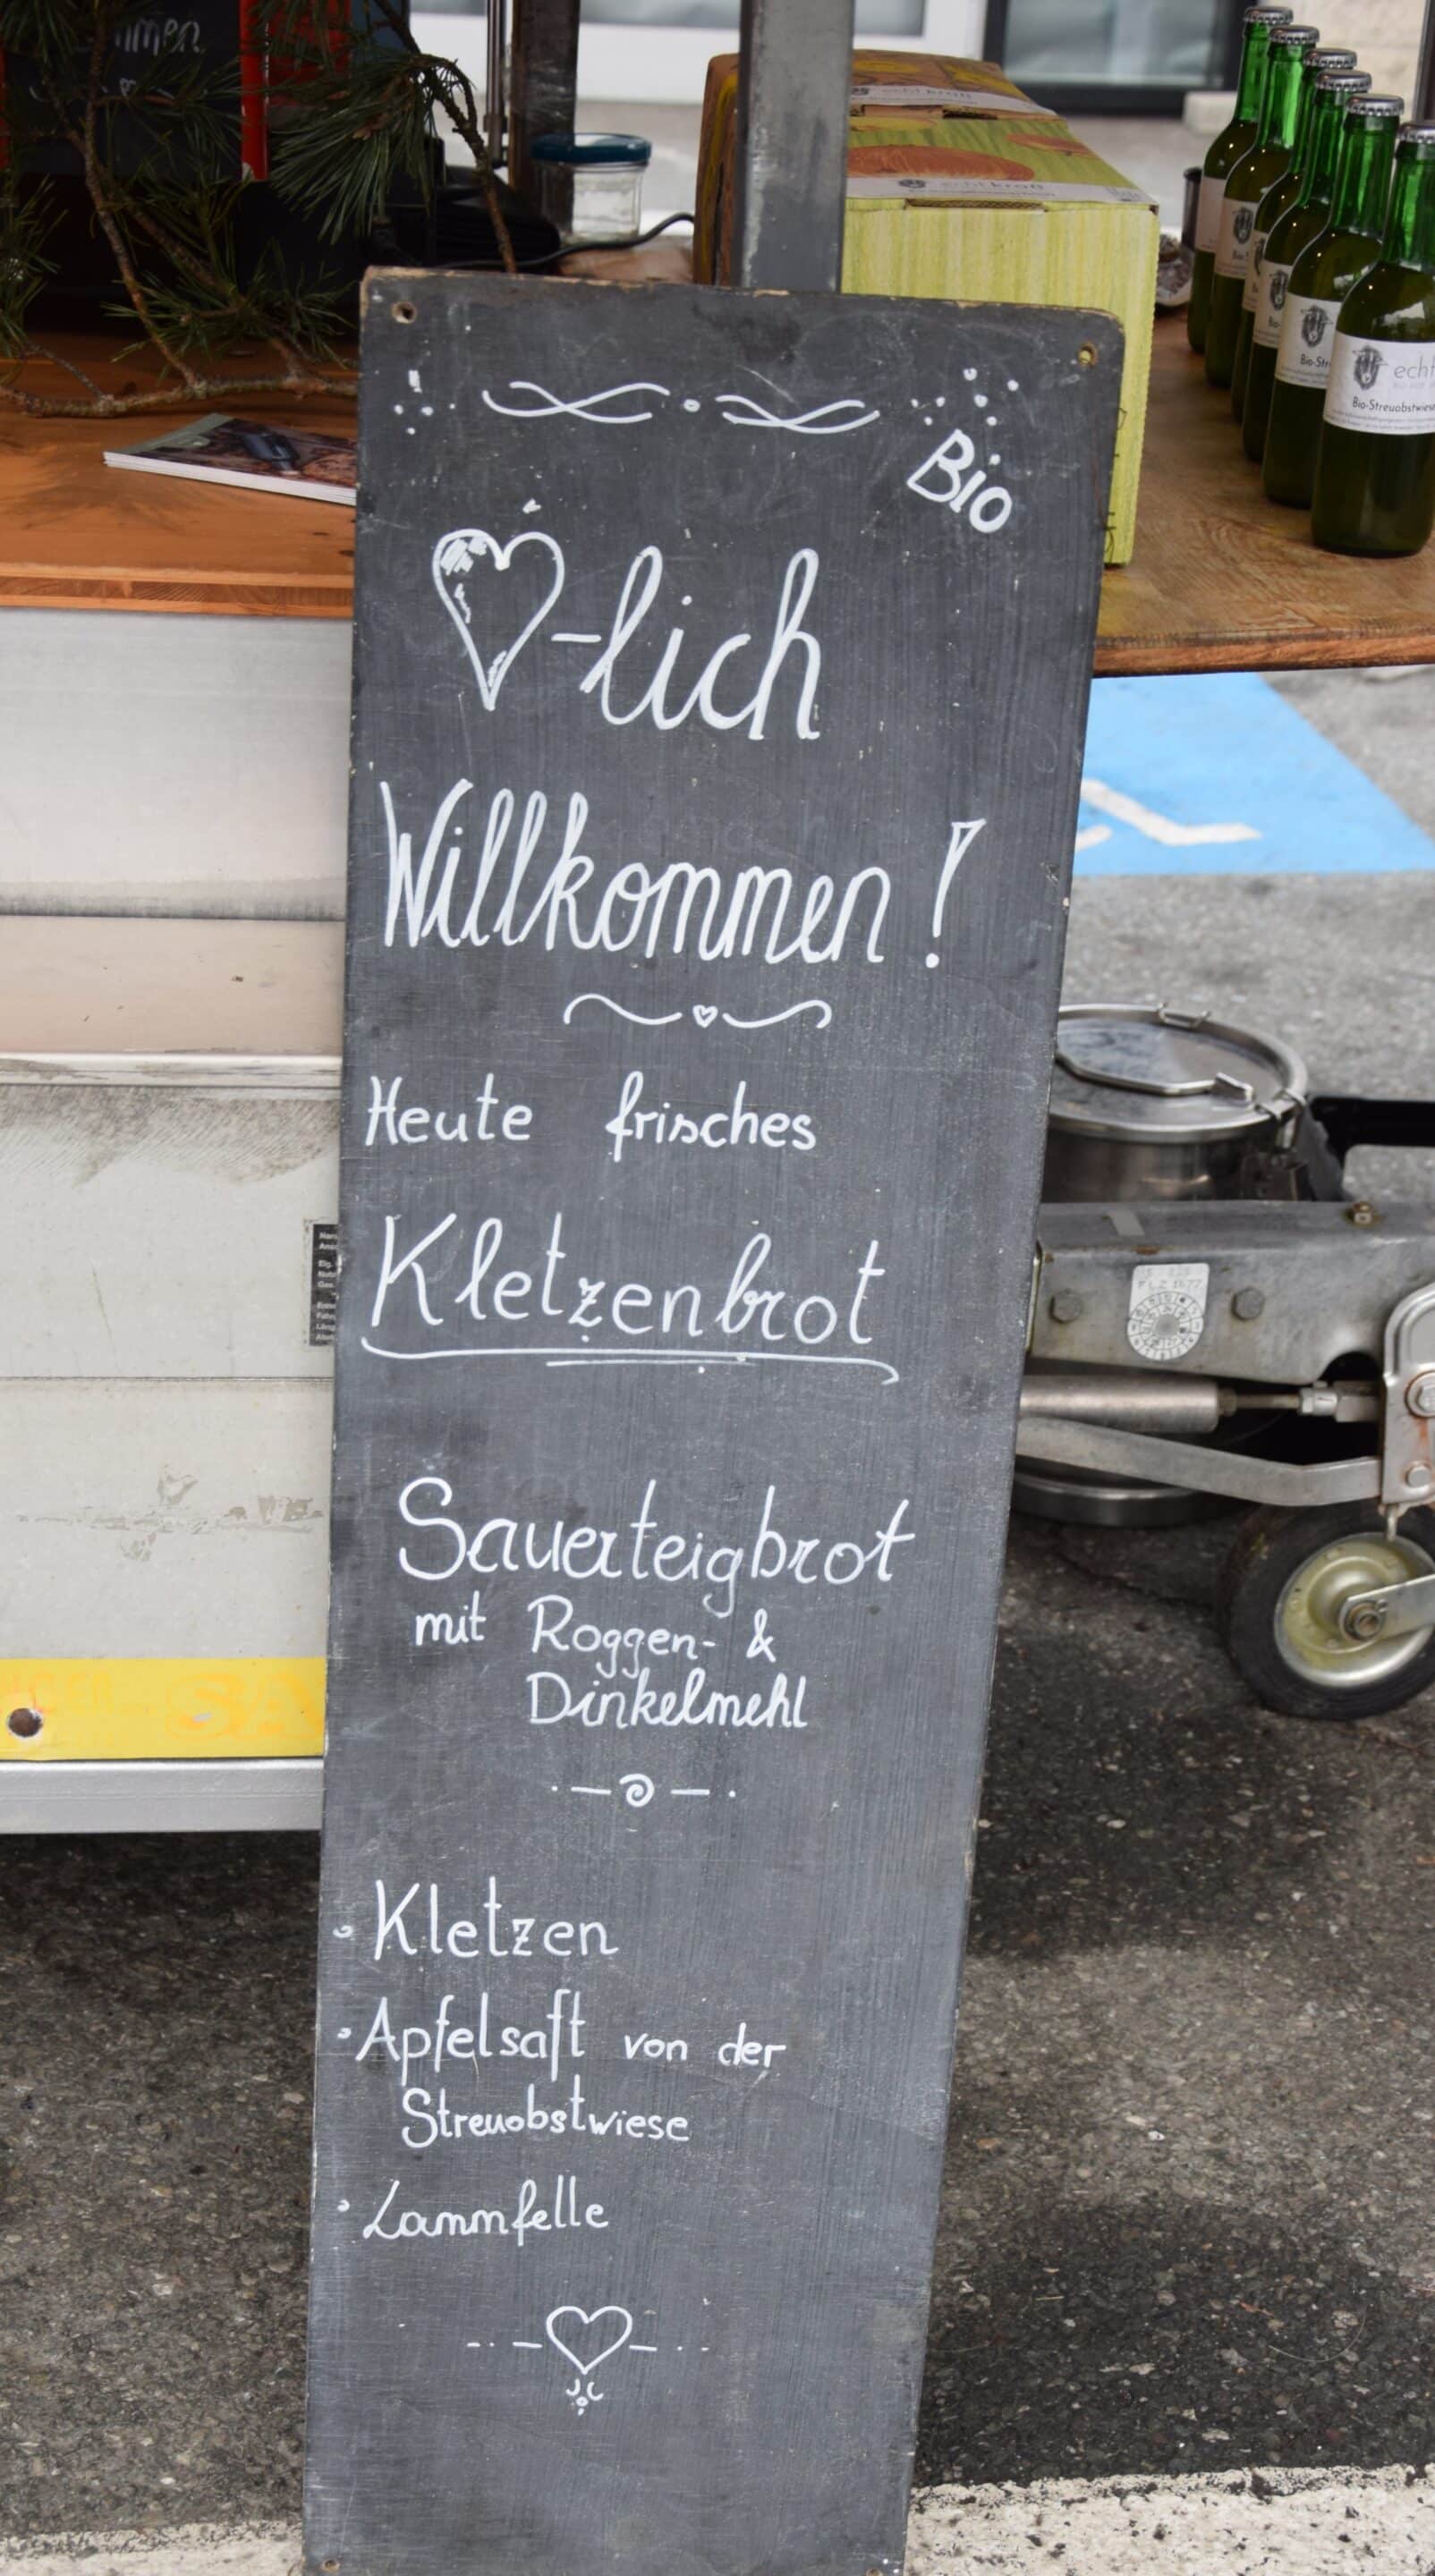 Bio
-lich
Willkommen!
Heute frisches
Kletzenbrot
Sauerteigbrot
mit Roggen- &
Dinkelmehl
Kletzen
Apfelsaft von der
Streuobstwiese
Lammfelle
echt kroß
echt
Bio-Streuobstwiese
Bio-Str